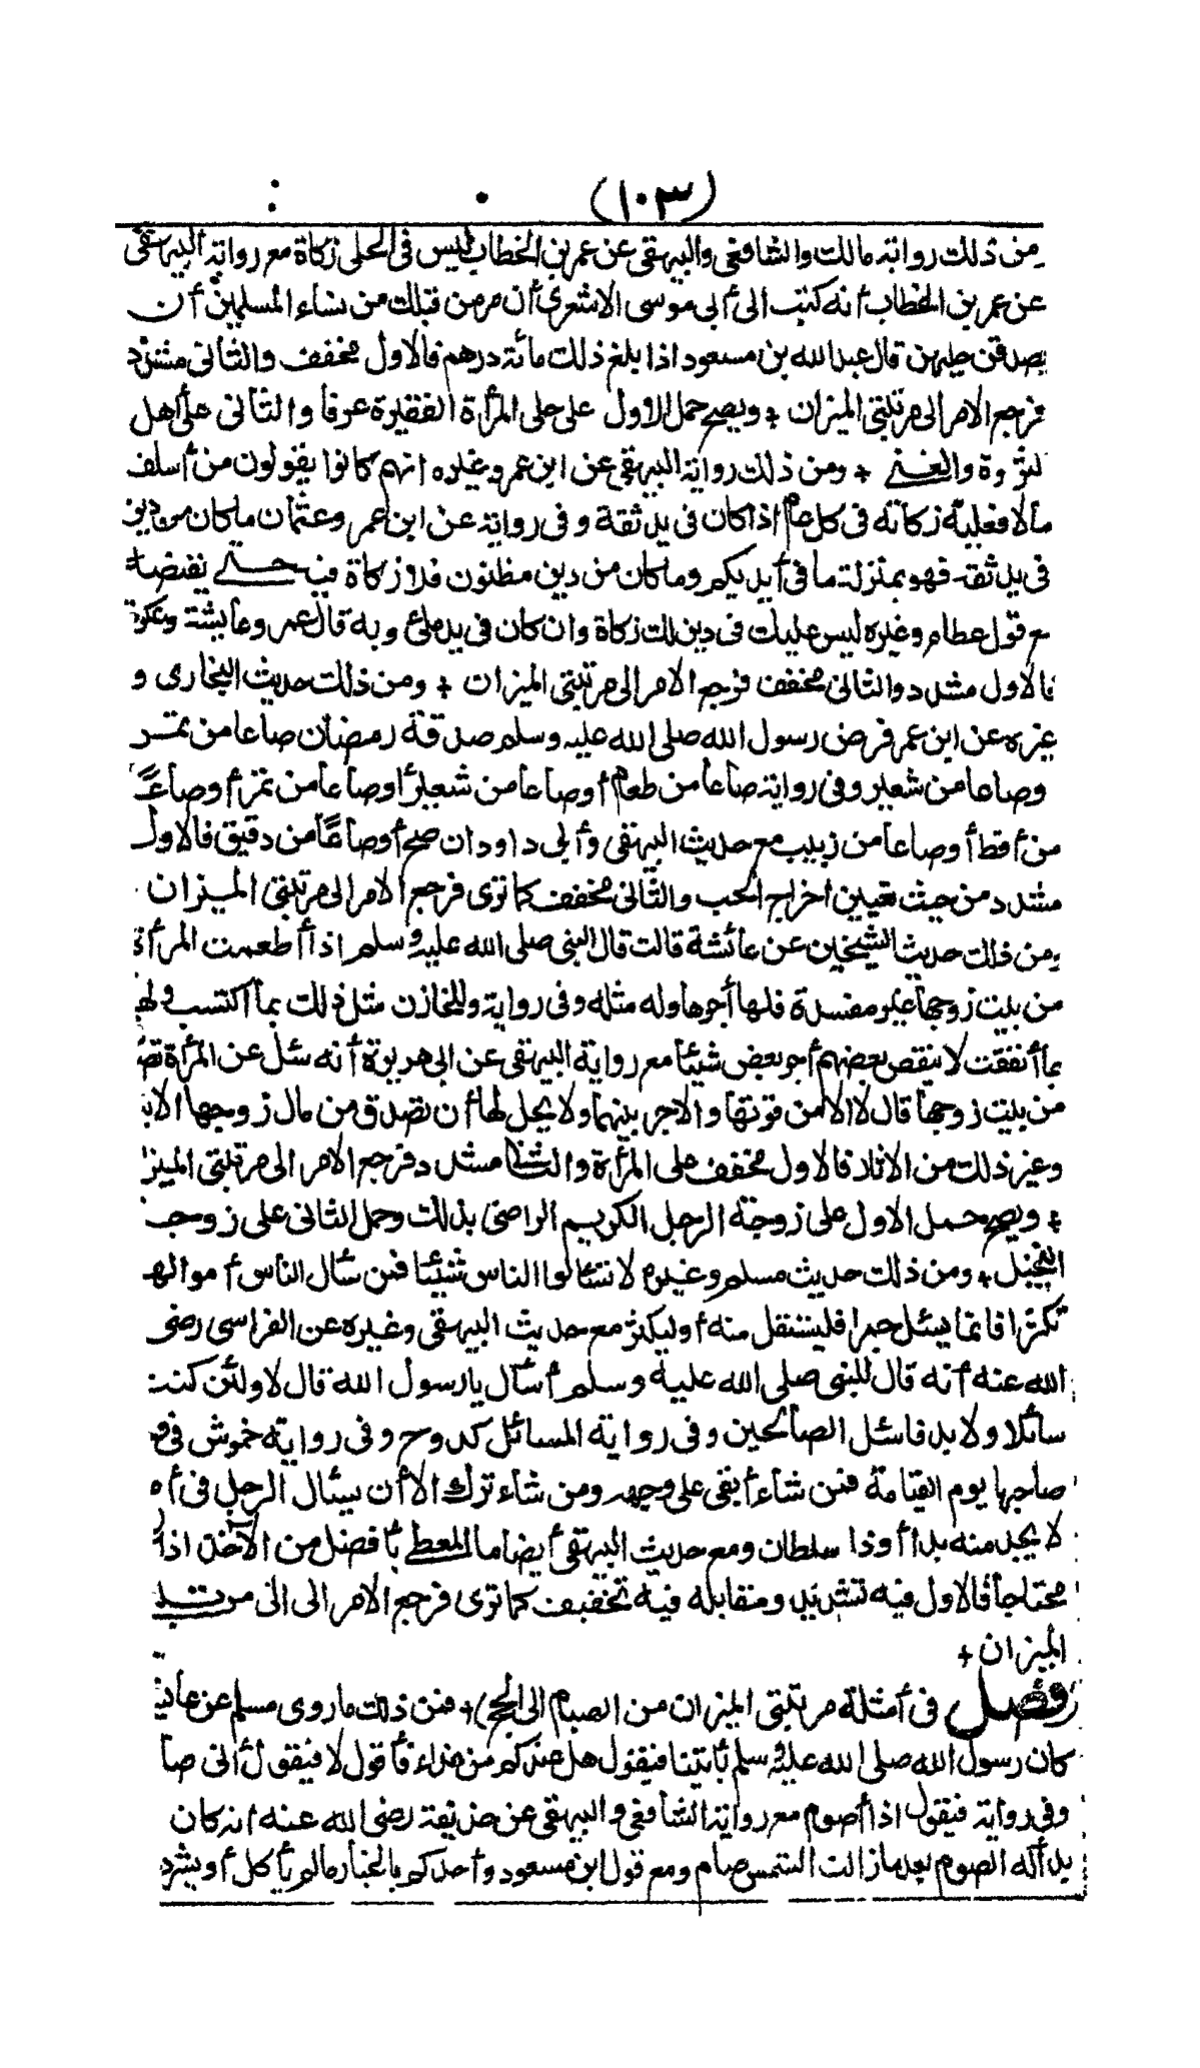 (١٠٣)
من ذلك رواية مالك والشافعى والبيهقى عن عمر بن الخطاب ليس فى الحلى زكاة مع رواية البيهقى
عن عمر بن الخطاب أنه كتب الى أبى موسى الاشعرى أن مر من قبلك من نساء المسلمين أن
يصدقن حليهن قال عبد الله بن مسعود اذا بلغ ذلك مائة درهم فالاول مخفف والثانى مشدد
فرجع الامر الى مرتبتى الميزان + ويصح حمل الاول على حلى المرأة الفقيرة عرفا والثانى على أهل
لثروة والغنى + ومن ذلك رواية البيهقى عن ابن عمر وغيره انهم كانوا يقولون من أسلف
مالا فعليه زكاته فى كل عام اذا كان فى يد ثقة وفى رواية عن ابن عمر وعثمان ما كان من دين
فى يد ثقة فهو بمنزلة ما فى أيديكم وما كان من دين مظنون فلا زكاة فيه حتى يقتضيه
مع قول عطاء وغيره ليس عليك فى دين لك زكاة وان كان فى يد ملئ وبه قال عمر وعايشة وعكرة
فالاول مشدد والثانى مخفف فرجع الامر الى مرتبتى الميزان + ومن ذلك حديث البخارى و
غيره عن ابن عمر فرض رسول الله صلى الله عليه وسلم صدقة رمضان صاعا من تمر
وصاعا من شعير وفى رواية صاعا من طعام أوصاعا من شعير أوصاعا من تمر أوصاعًا
من أقط أوصاعا من زبيب مع حديث البيهقى وأبى داود ان صح أوصاعًا من دقيق فالاول
مشدد من حيث تعيين اخراج الحب والثانى مخفف كما ترى فرجع الامر الى مرتبتى الميزان
ومن ذلك حديث الشيخين عن عائشة قالت قال النبى صلى الله عليه وسلم اذا أطعمت المرأة
من بيت زوجها غير مفسدة فلها أجرها وله مثله وفى رواية وللخازن مثل ذلك بما اكتسب ولها
بما أنفقت لا ينقص بعضهم أجر بعض شيئا مع رواية البيهقى عن ابى هريرة أنه سئل عن المرأة تصد
من بيت زوجها قال لا الا من قوتها والاجر بينهما ولا يحل لها أن تصدق من مال زوجها الا بـ
وغير ذلك من الاثار فالاول مخفف على المرأة والثانى مشدد فرجع الامر الى مرتبتى الميزا
+ ويصح حمل الاول على زوجة الرجل الكريم الراضى بذلك وحمل الثانى على زوجة
البخيل + ومن ذلك حديث مسلم وغيره لا تسألوا الناس شيئا فمن سأل الناس أموالهم
تكثرا فانما يسئل جمرا فليستقل منه أو ليكثر مع حديث البيهقى وغيره عن الفراسى رضى
الله عنه أنه قال للنبى صلى الله عليه وسلم أسأل يا رسول الله قال لا ولئن كنت
سائلا ولا بد فاسئل الصالحين وفى رواية المسائل كدوح وفى رواية خموش فى و
صاحبها يوم القيامة فمن شاء أبقى على وجهه ومن شاء ترك الا أن يسئال الرجل فى أم
لا يجد منه بدا أو ذا سلطان ومع حديث البيهقى أيضا ما المعطى بأفضل من الآخذ اذا
محتاجا فالاول فيه تشديد ومقابله فيه تخفيف كما ترى فرجع الامر الى الى مرتبتى
الميزان +
(فصل فى أمثلة مرتبتى الميزان من الصيام الى الحج) + فمن ذلك ما روى مسلم عن عايـ
كان رسول الله صلى الله عليه وسلم يأتينا فيقول هل عندكم من غداء فأقول لا فيقول أنى صا
وفى رواية فيقول اذا أصوم مع رواية الشافعى والبيهقى عن حذيفة رضى الله عنه انه كان
بدأ له الصوم بعد ما زالت الشمس صام ومع قول ابن مسعود وأحدكم بالخيار ما لم يأكل أو يشرب